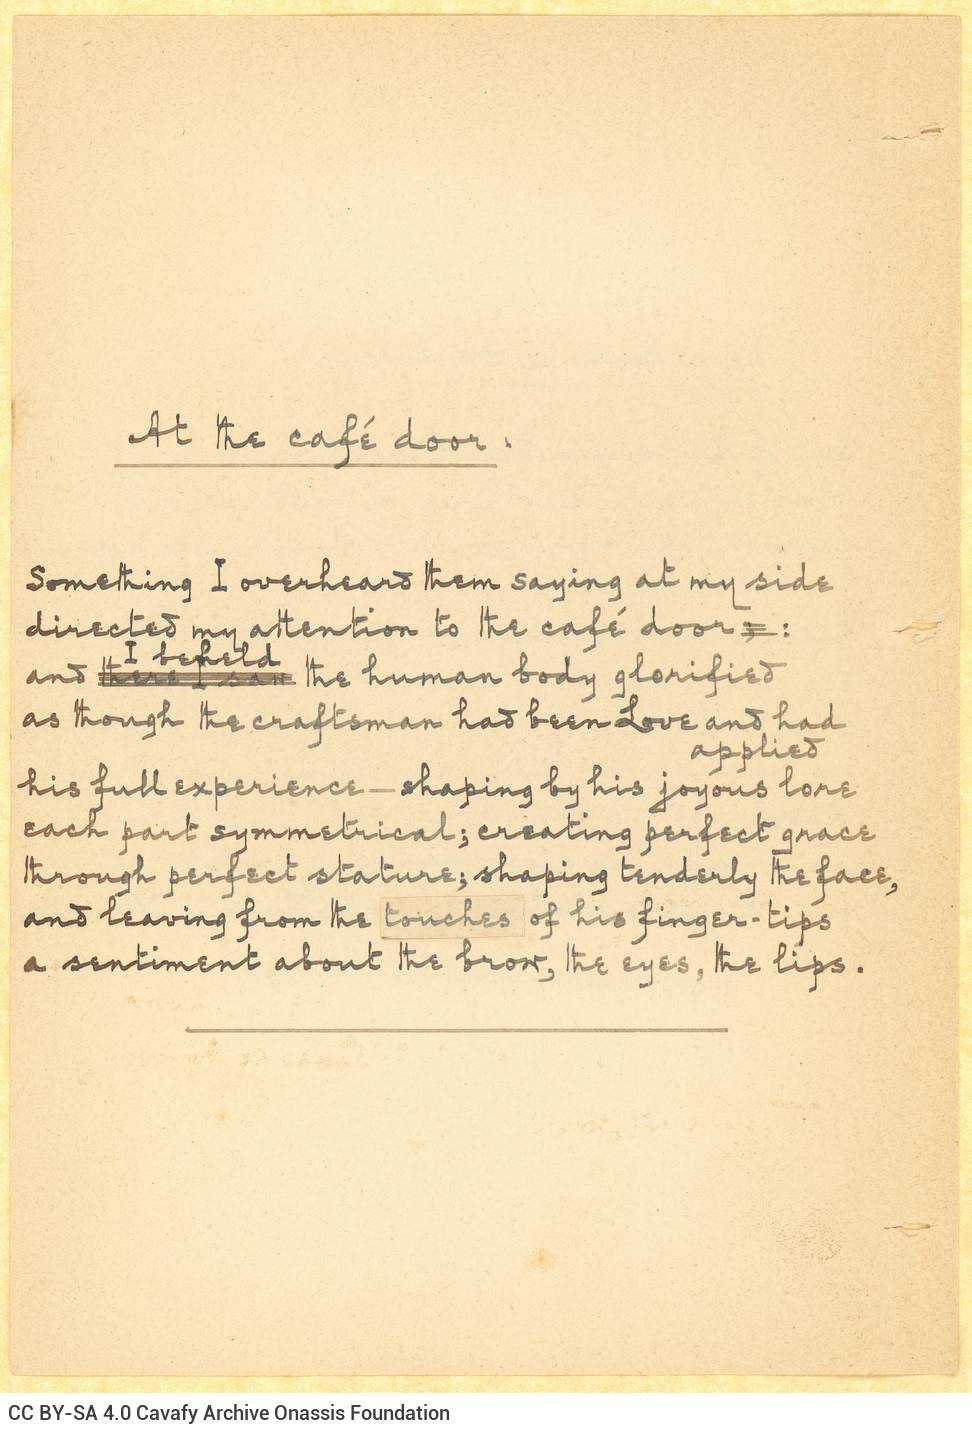 At the café door.
Something I overheard them saying at my side
directed my attention to the café door:
I beheld
and there I saw the human body glorified
as though the craftsman had been Love and had
applied
his full experience — shaping by his joyous lore
each part symmetrical; creating perfect grace
through perfect stature; shaping tenderly the face,
and leaving from the touches of his finger-tips
a sentiment about the brow, the eyes, the lips.
CC BY-SA 4.0 Cavafy Archive Onassis Foundation